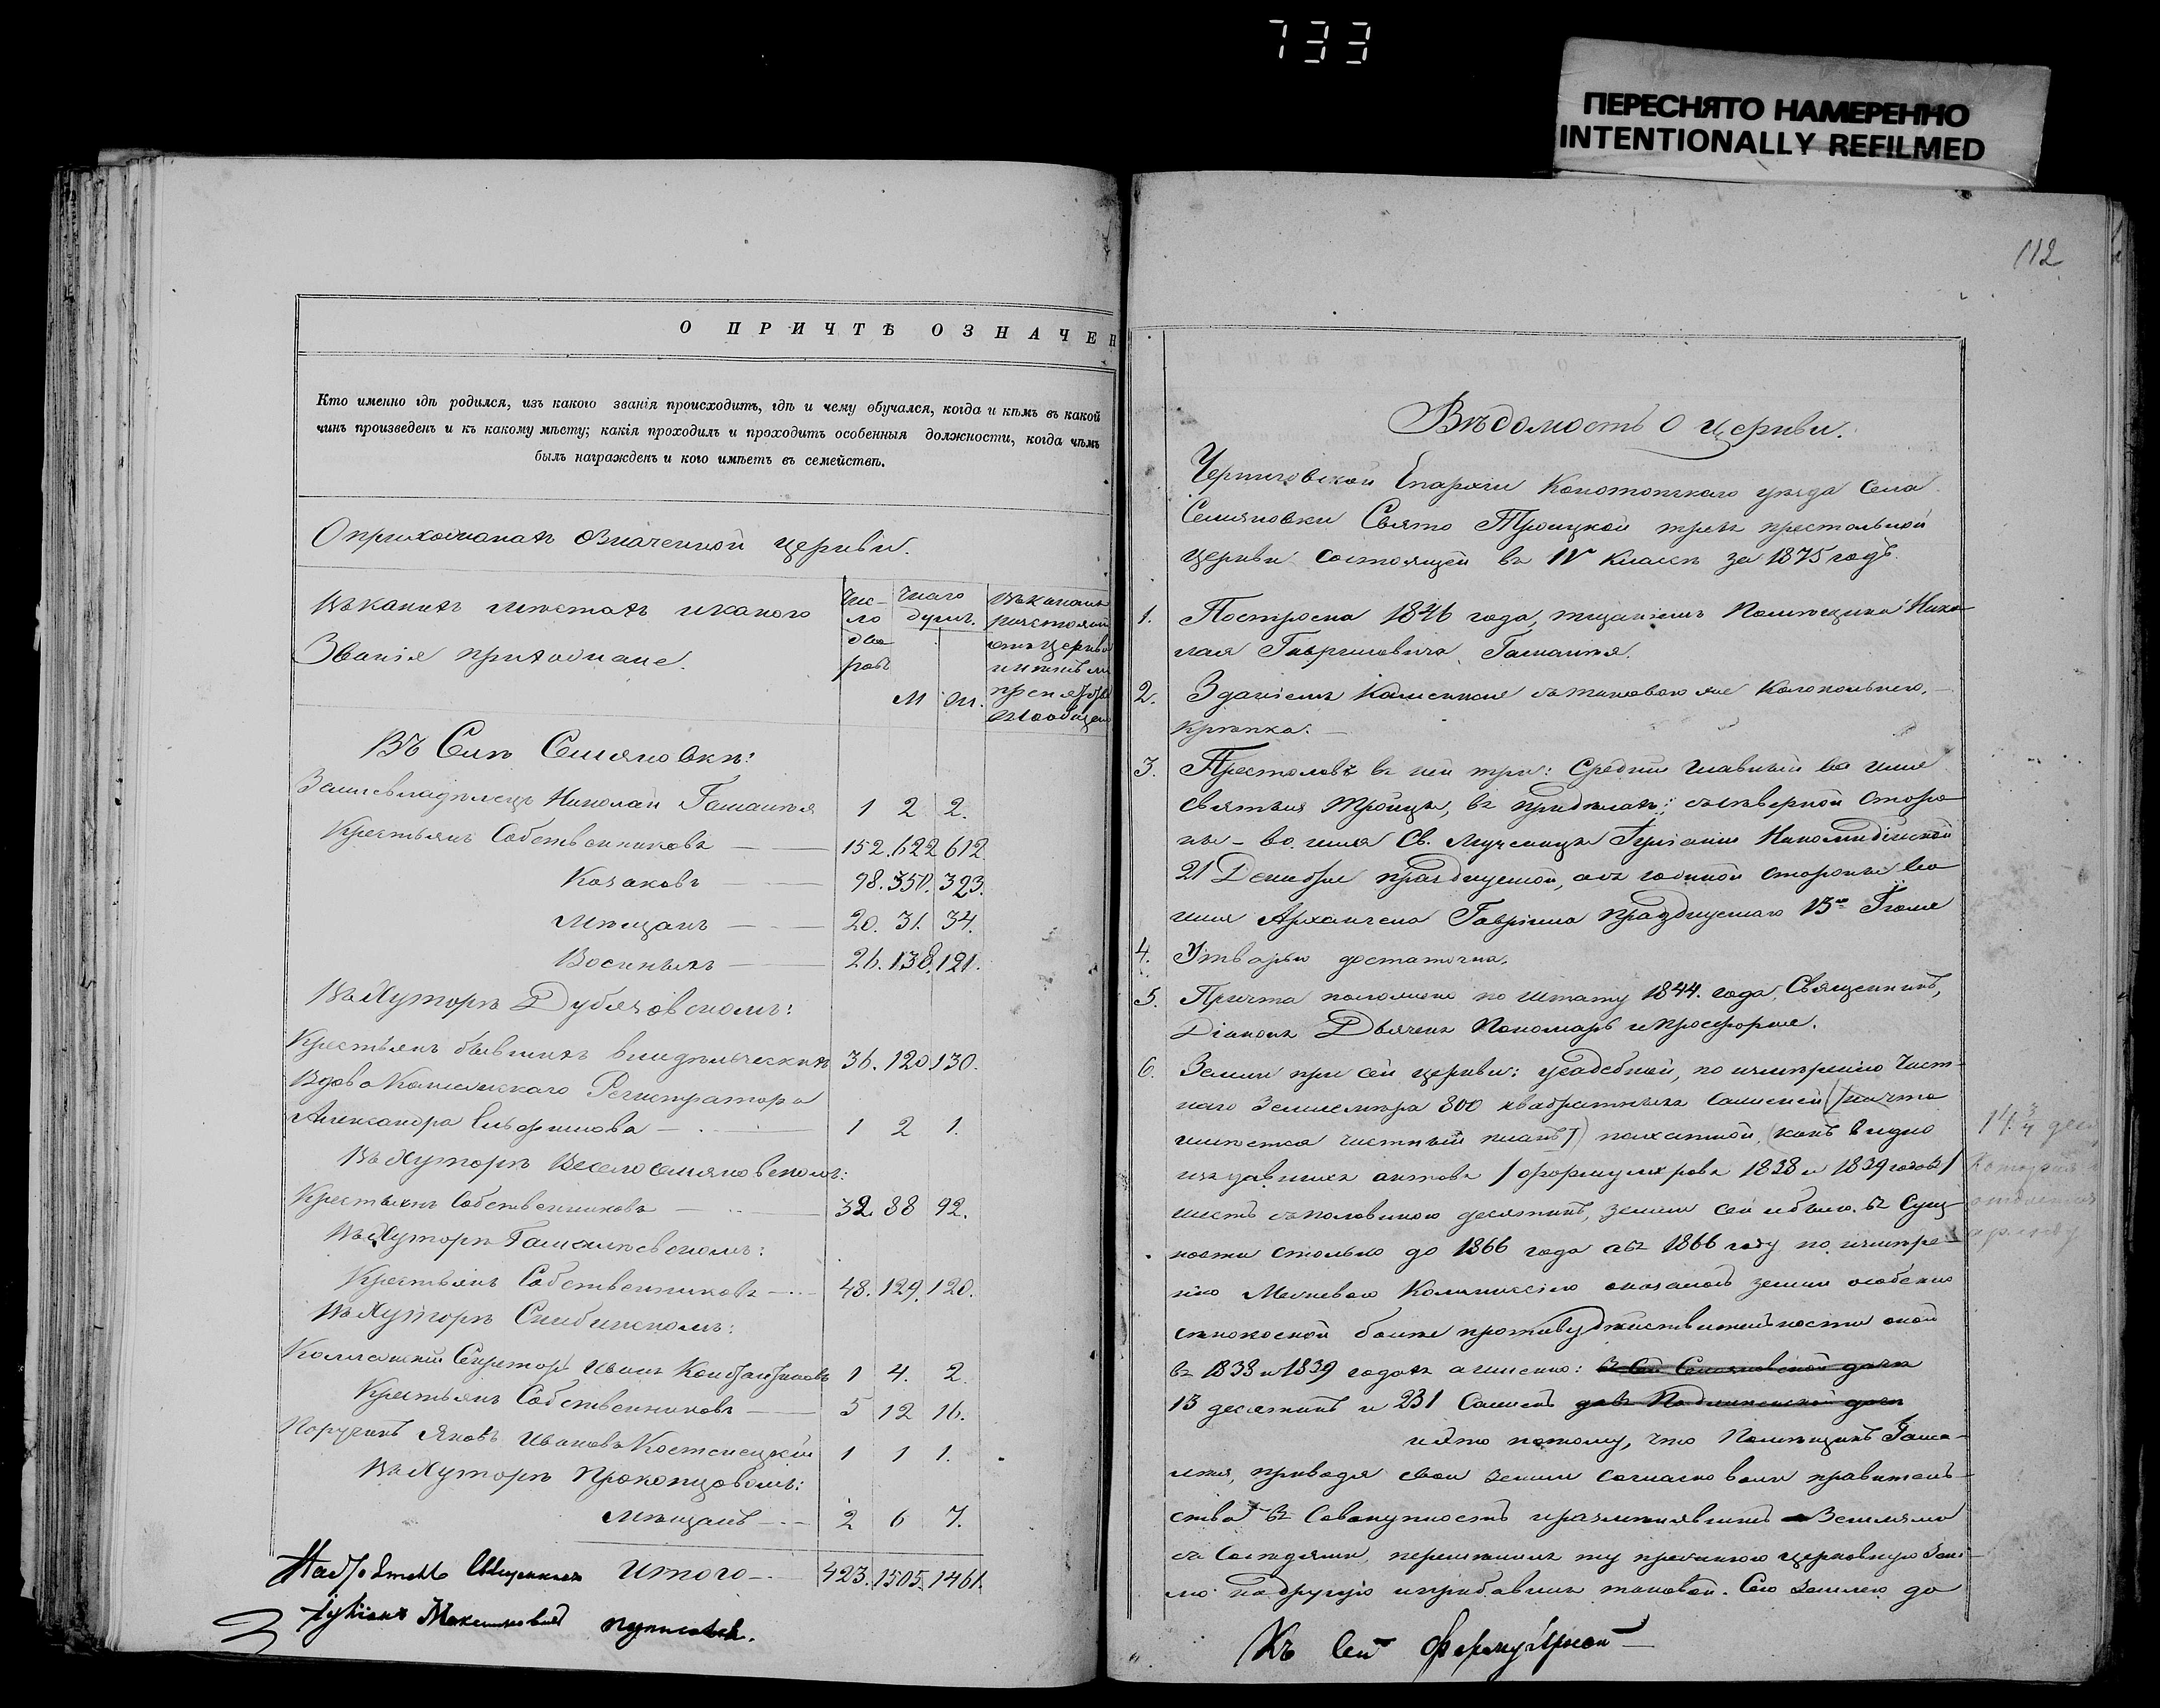 733
ПЕРЕСНЯТО НАМЕРЕННО
INTENTIONALLY REFILMED
О ПРИЧТѢ ОЗНАЧЕН
Кто именно гдѣ родился, изъ какого званія происходитъ, гдѣ и чему обучался, когда и кѣмъ въ какой
чинъ произведенъ и къ какому мѣсту; какія проходилъ и проходитъ особенныя должности, когда чѣмъ
былъ награжденъ и кого имѣетъ въ семействѣ.
О прихожанахъ означенной церкви.
Въ какихъ мѣстахъ и какого
Званія прихожане.
Чис-
ло
дво
ровъ
Число
душъ.
М Ж.
Въ Селѣ Семяновкѣ:
Землевладѣлецъ Николай Гамалѣя 1 2 2.
Крестьянъ Собственниковъ 152. 622 612.
Козаковъ 98. 350. 323.
Мѣщанъ 20. 31. 34.
Военныхъ 26. 138. 121.
Въ Хуторѣ Дубязовскомъ:
Крестьянъ бывшихъ владѣльческихъ 36. 120. 130.
Вдова Коллежскаго Регистратора
Александра 1 2 1.
Въ Хуторѣ Веселосемяновскомъ:
Крестьянъ Собственниковъ 32. 88 92.
Въ Хуторѣ Гамалѣевскомъ:
Крестьянъ Собственниковъ 48. 129. 120.
Въ Хуторѣ
Коллежскій Секретарь Иванъ 1 4. 2.
Крестьянъ Собственниковъ 5 12 16.
Поручикъ Яковъ Ивановъ Костенецкій 1 1 1.
Въ Хуторѣ Прокопцовомъ:
Мѣщанъ 2 6 7.
Итого 423. 1505. 1461.
112
Вѣдомость о церкви.
Черниговской Епархіи Конотопскаго уѣзда Села
Семяновки Свято Троицкой трехъ престольной
церкви состоящей въ IV классѣ за 1875 годъ.
1. Построена 1846 года, тщаніемъ Помѣщика Нико
лая Гавриловича Гамалѣя.
2. Зданіемъ Каменная съ таковою же Колокольнею,
крѣпка.
3. Престоловъ въ ней три: Средній главный во имя
Святыя Троицы, въ придѣлахъ: съ сѣверной сторо
ны - во имя Св. Мученицы Іуліаніи Никомидійской
21 Декабря празднуемой, а съ южной стороны во
имя Архангела Гавріила празднуемаго 13го Іюля
4. Утварью достаточна.
5. Причта положено по штату 1844. года, Священникъ,
Діаконъ Дьячекъ Пономарь и просфорня.
6. Земли при сей церкви: усадебной, по измѣренію част-
наго Землемѣра 800 квадратныхъ саженей / на что
имѣется частный планъ / пахатной, какъ видно
изъ давнихъ актовъ / формуляровъ 1838 и 1839 годовъ /
шесть съ половиною десятинъ, земли сей и было въ сущ-
ности столько до 1866 года а въ 1866 году по измѣре-
нію Межевою Коммиссіею оказалось земли особенно
сѣнокосной болѣе противу дѣйствительности оной
въ 1838 и 1839 годахъ а именно:
13 десятинъ и 231 Сажень
и это потому, что Помѣщикъ Гама-
лѣя, приводя свои земли согласно воли правитель-
ства въ Совокупность Землями
съ Сосѣдями, перемѣнилъ ту прежнюю церковную зем-
лю на другую и прибавилъ таковой. Сею землею до
14 3/4 деся
Къ сей